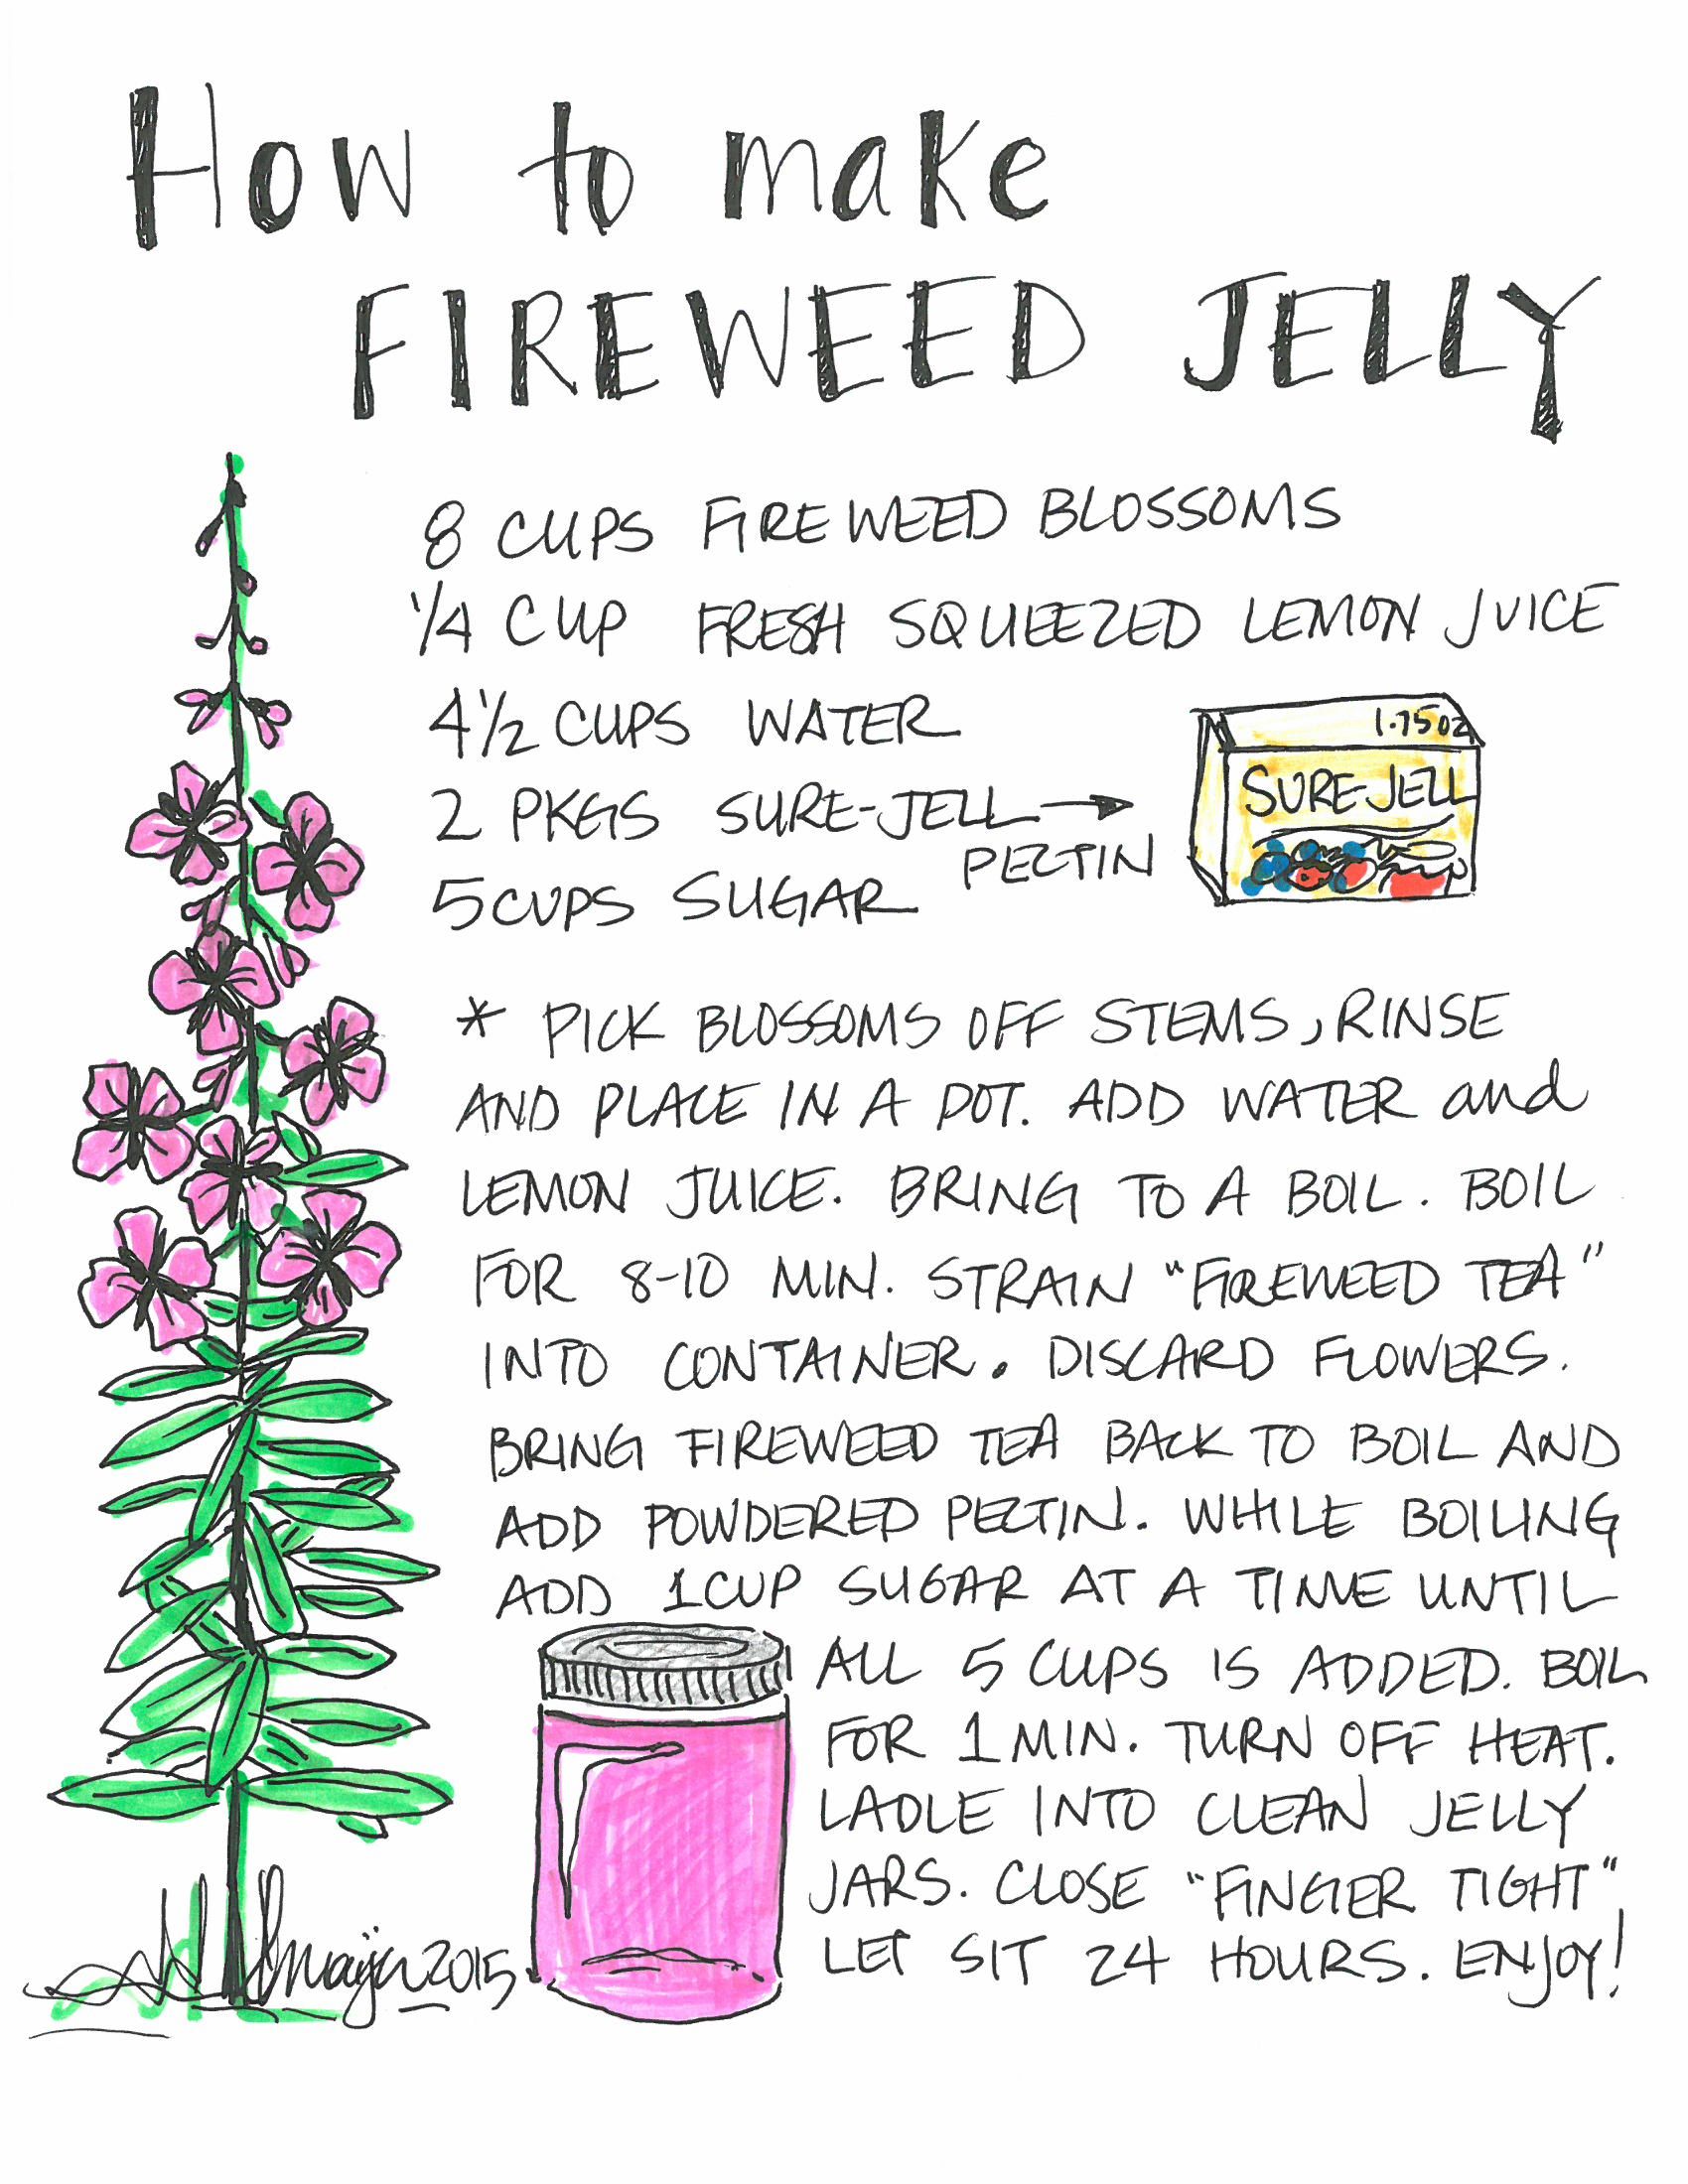 How to make
FIREWEED JELLY
8 CUPS FIREWEED BLOSSOMS
1/4 CUP FRESH SQUEEZED LEMON JUICE
4 1/2 CUPS WATER
2 PKGS SURE-JELL →
PECTIN
1.75 oz
SURE-JELL
5 CUPS SUGAR
* PICK BLOSSOMS OFF STEMS, RINSE
AND PLACE IN A POT. ADD WATER and
LEMON JUICE. BRING TO A BOIL. BOIL
FOR 8-10 MIN. STRAIN "FIREWEED TEA"
INTO CONTAINER. DISCARD FLOWERS.
BRING FIREWEED TEA BACK TO BOIL AND
ADD POWDERED PECTIN. WHILE BOILING
ADD 1 CUP SUGAR AT A TIME UNTIL
ALL 5 CUPS IS ADDED. BOIL
FOR 1 MIN. TURN OFF HEAT.
LADLE INTO CLEAN JELLY
JARS. CLOSE "FINGER TIGHT"
LET SIT 24 HOURS. ENJOY!
2015